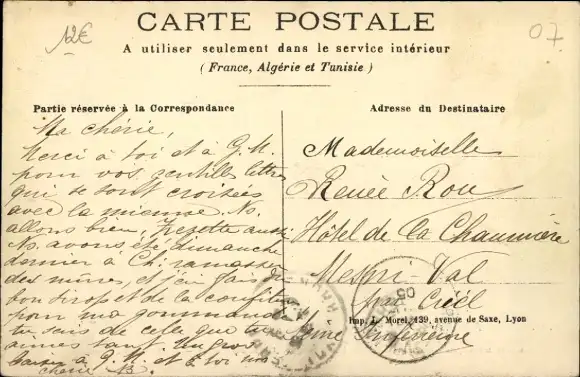 12€
07
CARTE POSTALE
A utiliser seulement dans le service intérieur
(France, Algérie et Tunisie)
Partie réservée à la Correspondance
Ma chérie,
Merci à toi et à G. M.
pour vos gentilles lettres
qui se sont croisées
avec la mienne. Ns.
allons bien, Zezette aussi
Ns. avons été, dimanche
dernier à Ch. ramasser
des mûres, et j'ai fait du
bon sirop et de la confiture
pour ma gourmande
tu sais de celle que tu
aimes tant. Un gros
baiser à G. M. et à toi
chérie B.
Adresse du Destinataire
Mademoiselle
Renée Rou
Hôtel de la Chaumière
Val
Inférieure
Imp. L. Morel, 139, avenue de Saxe, Lyon